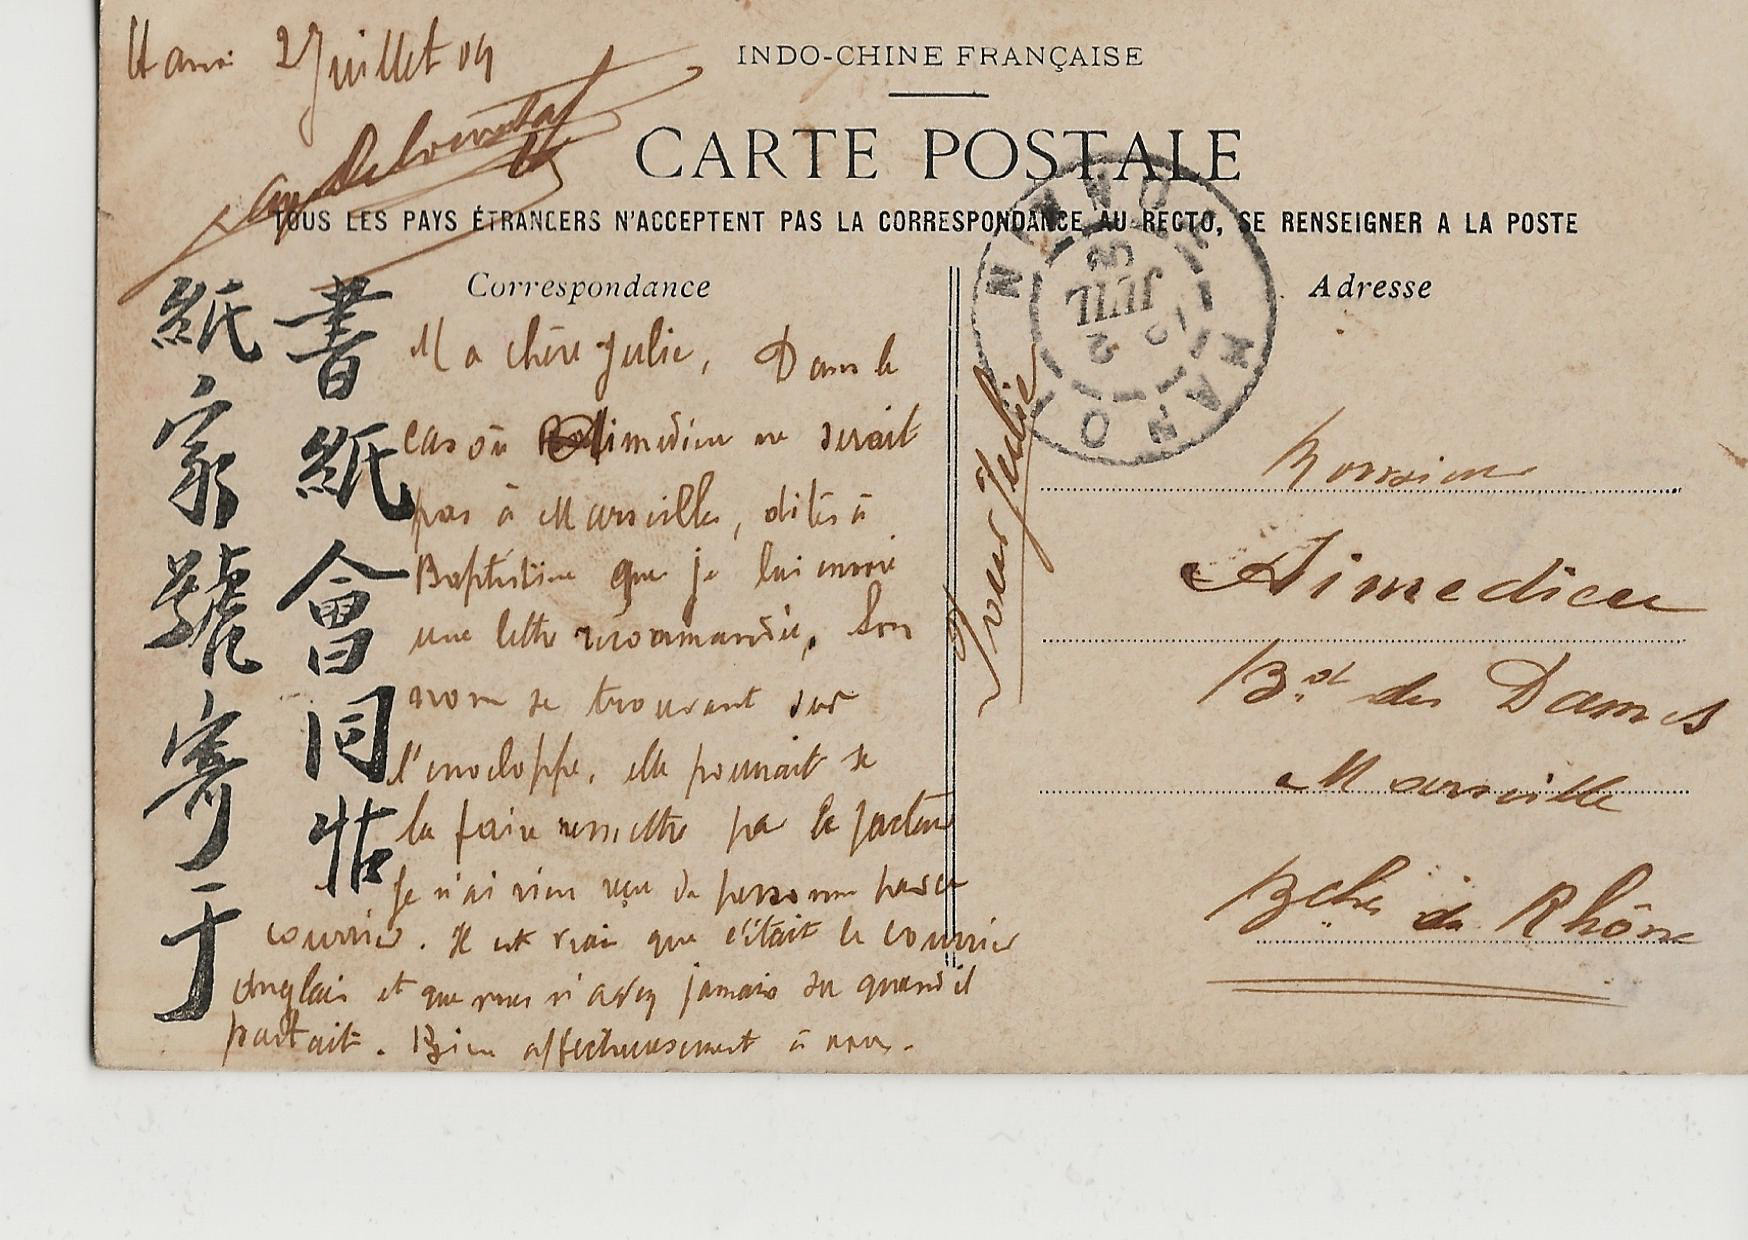 Hanoi 2 Juillet 09
INDO-CHINE FRANÇAISE
CARTE POSTALE
TOUS LES PAYS ÉTRANGERS N'ACCEPTENT PAS LA CORRESPONDANCE AU RECTO, SE RENSEIGNER A LA POSTE
Correspondance
Adresse
HANOI
2 JUIL 09
書紙會同帖
紙家號寄于
Ma chère Julie, Dans le
cas où Aimedieu ne serait
pas à Marseille, dites à
Baptistine que je lui envoie
une lettre recommandée, Son
nom se trouvant sur
l'enveloppe, elle pourrait se
la faire remettre par le facteur
Je n'ai rien reçu de personne par ce
courrier. Il est vrai que c'était le courrier
Anglais et que vous n'avez jamais su quand il
partait. Bien affectueusement à vous.
Pour Julie
Monsieur
Aimedieu
Bd des Dames
Marseille
Bches du Rhône